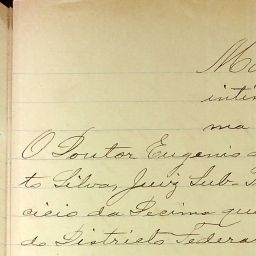 Ma
inti
ma
O Doutor Eugenio d
to Silva, Juiz Sub-
cicio da Decima qu
do Districto Federa